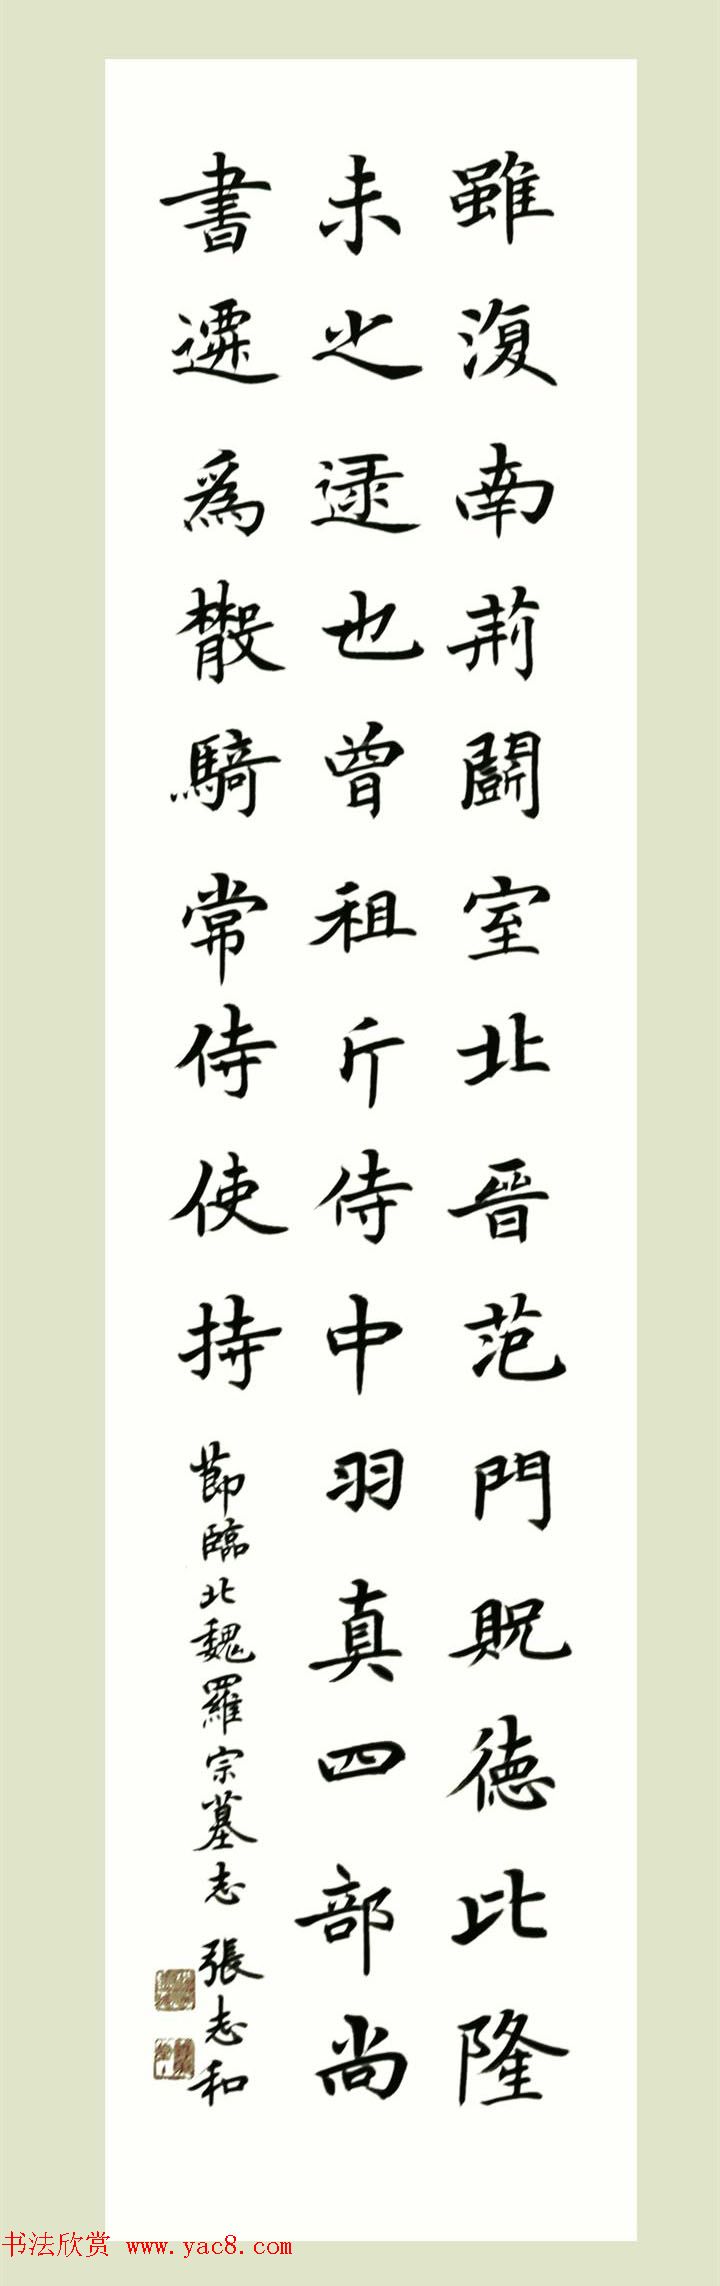 雖復南荊闘室北晉范門貺德比隆
未之逯也曾祖斤侍中羽真四部尚
書遷爲散騎常侍使持
節臨北魏羅宗墓志 張志和
书法欣赏 www.yac8.com